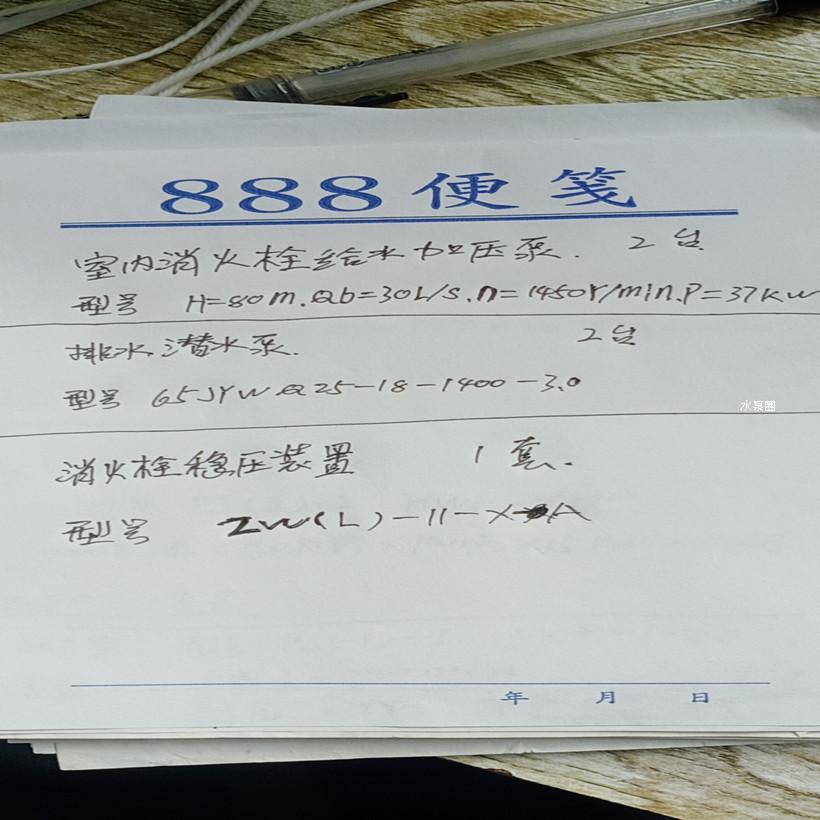 888便笺
室内消火栓给水加压泵. 2台
型号 H=80m.Qb=30L/s.n=1450r/min.P=37KW
排水潜水泵. 2台
型号 65JYWQ25-18-1400-3.0
水泵圈
消火栓稳压装置 1套.
型号 ZW(L)-11-X-A
年 月 日